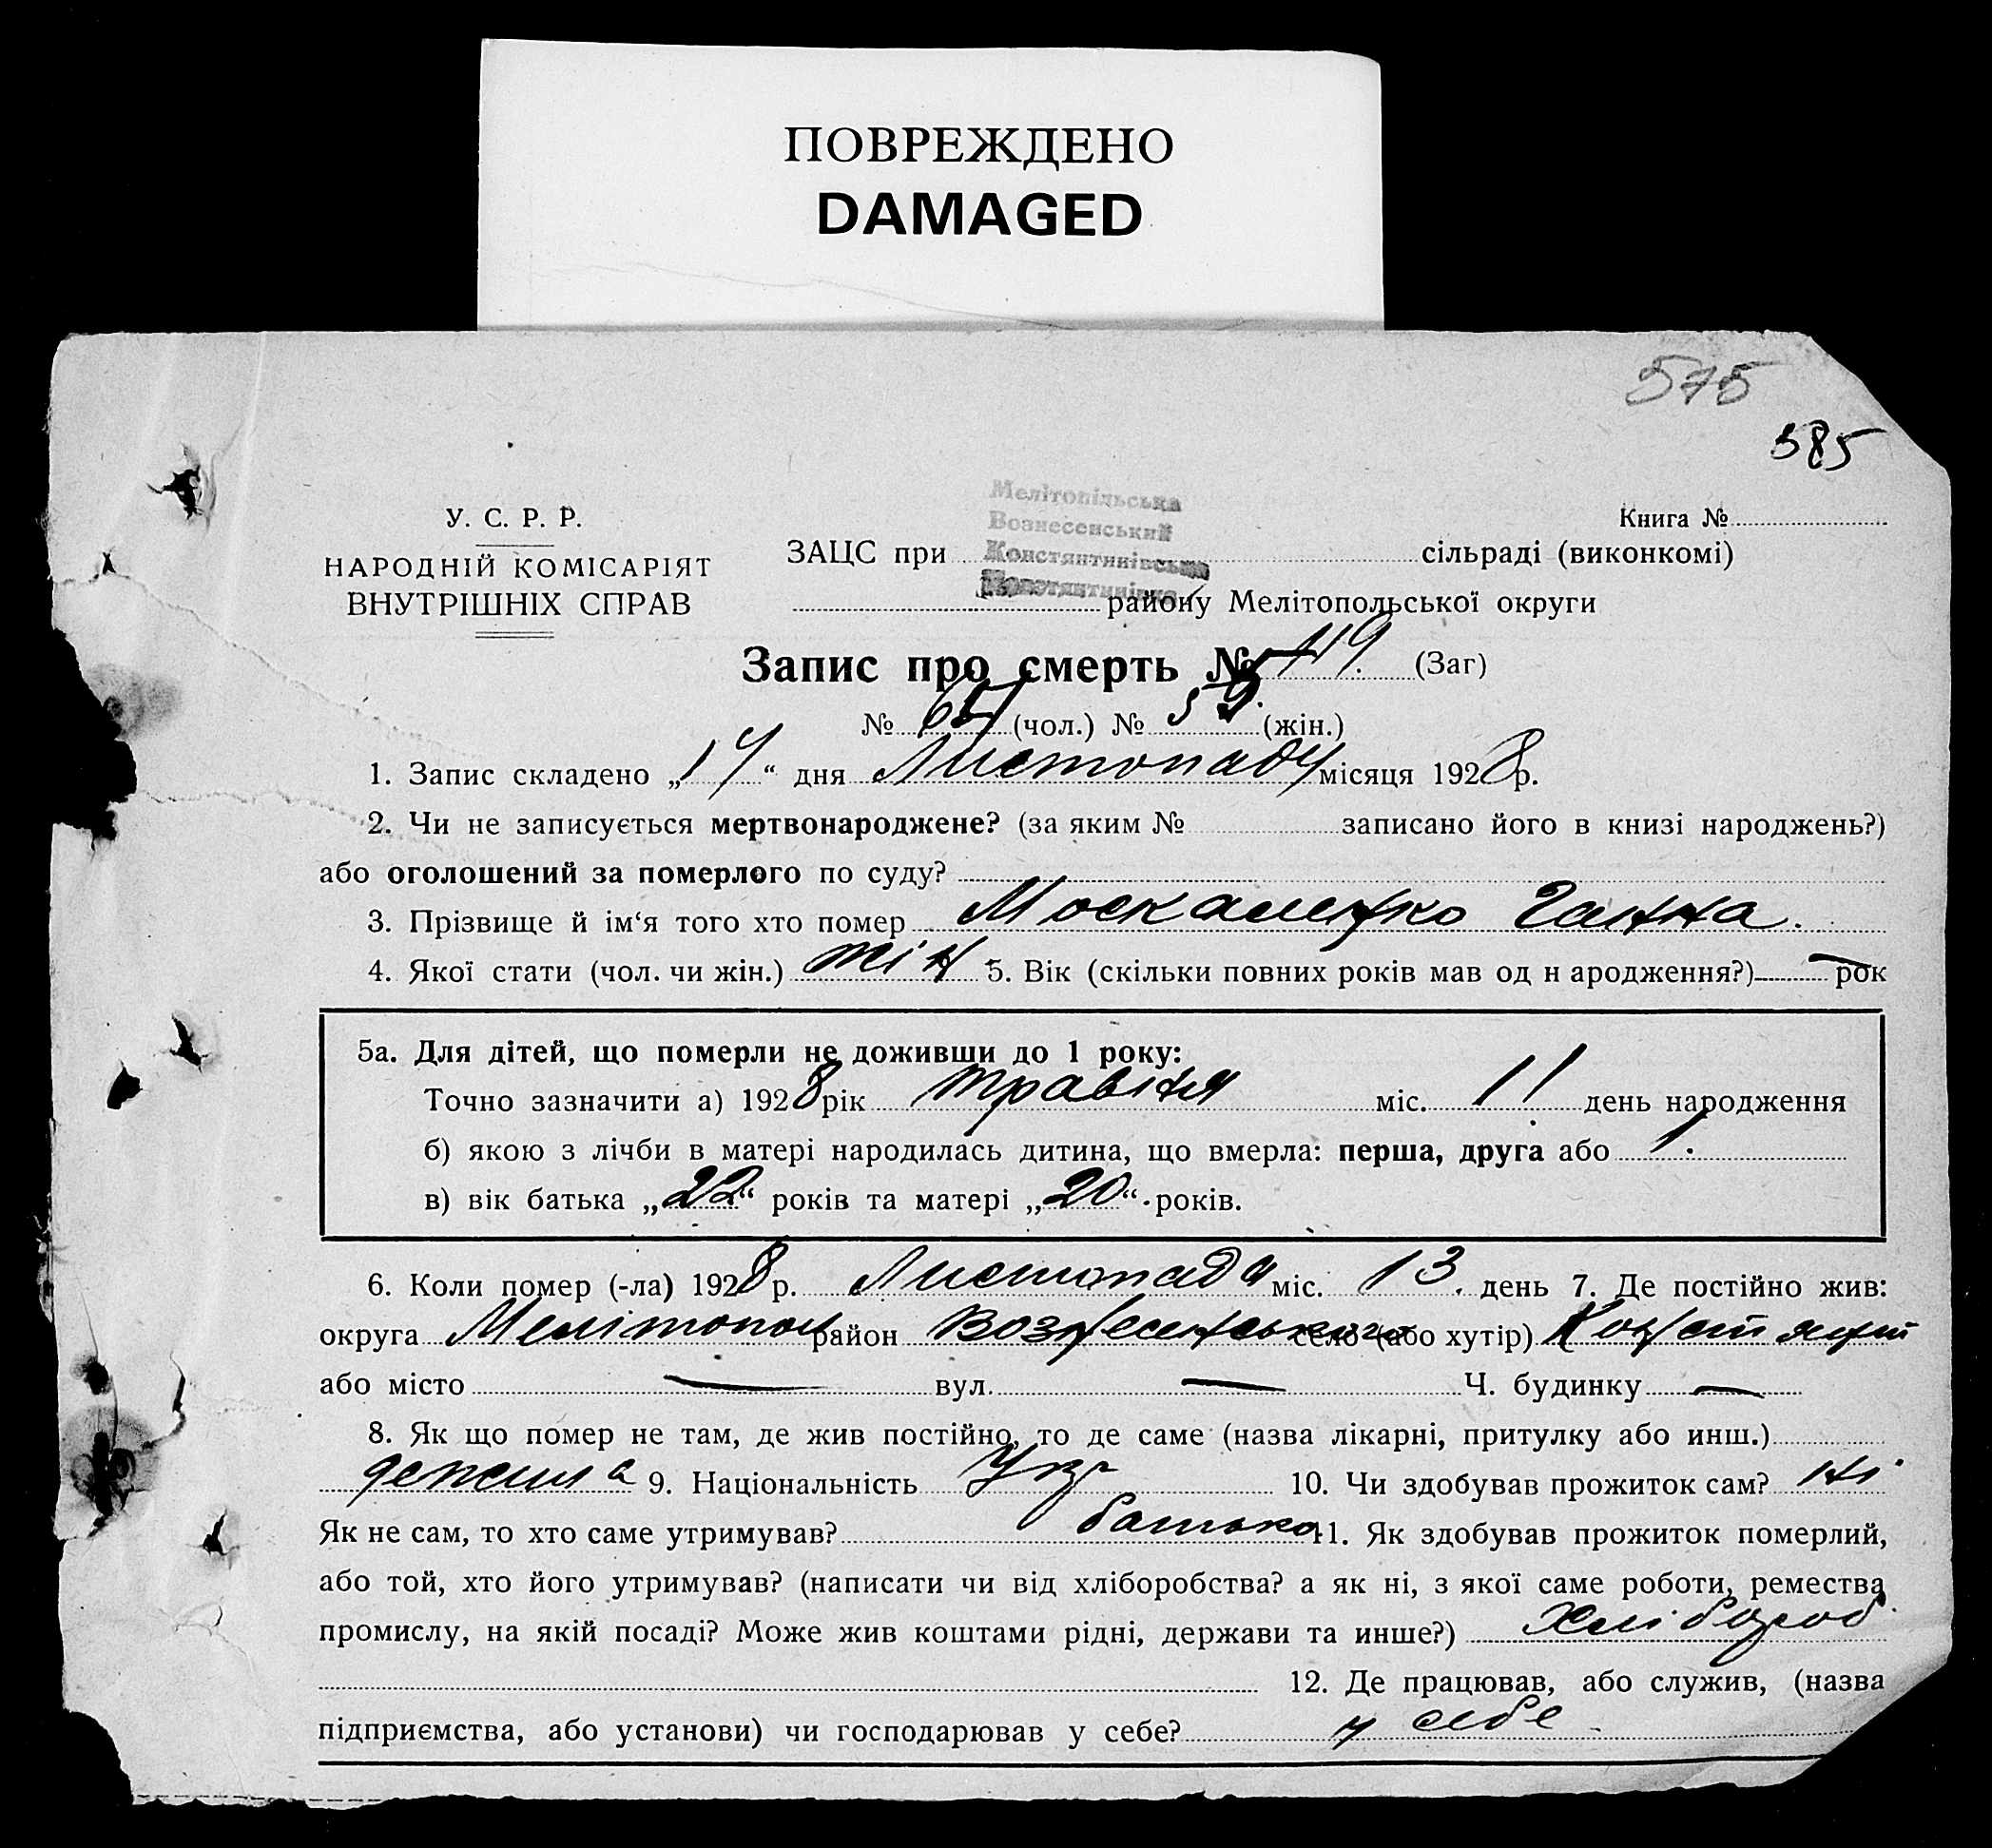 ПОВРЕЖДЕНО
DAMAGED
575
585
У. С. Р. Р.
НАРОДНІЙ КОМІСАРІЯТ
ВНУТРІШНІХ СПРАВ
Мелітопільська
Вознесенський
Константинівська
Константинівка
Книга №
ЗАЦС при сільраді (виконкомі)
району Мелітопольської округи
Запис про смерть № 119. (Заг)
№ (чол.) № 59. (жін.)
1. Запис складено „14“ дня Листопаду місяця 1928 р.
2. Чи не записується мертвонароджене? (за яким № записано його в книзі народжень?)
або оголошений за померлого по суду?
3. Прізвище й ім‘я того хто помер Москаленко Ганна.
4. Якої стати (чол. чи жін.) жін 5. Вік (скільки повних років мав од н ародження?) — рок
5а. Для дітей, що померли не доживши до 1 року:
Точно зазначити а) 1928 рік травня міс. 11 день народження
б) якою з лічби в матері народилась дитина, що вмерла: перша, друга або 1.
в) вік батька „22“ років та матері „20“ років.
6. Коли помер (-ла) 1928 р. Листопада міс. 13. день 7. Де постійно жив:
округа Мелітопол район Вознесенський село (або хутір) Констянт
або місто — вул. — Ч. будинку —
8. Як що помер не там, де жив постійно, то де саме (назва лікарні, притулку або инш.)
де жила 9. Національність Укр 10. Чи здобував прожиток сам? ні
Як не сам, то хто саме утримував? батько 11. Як здобував прожиток померлий,
або той, хто його утримував? (написати чи від хліборобства? а як ні, з якої саме роботи, ремества
промислу, на якій посаді? Може жив коштами рідні, держави та инше?) хлібороб
12. Де працював, або служив, (назва
підприємства, або установи) чи господарював у себе? у себе